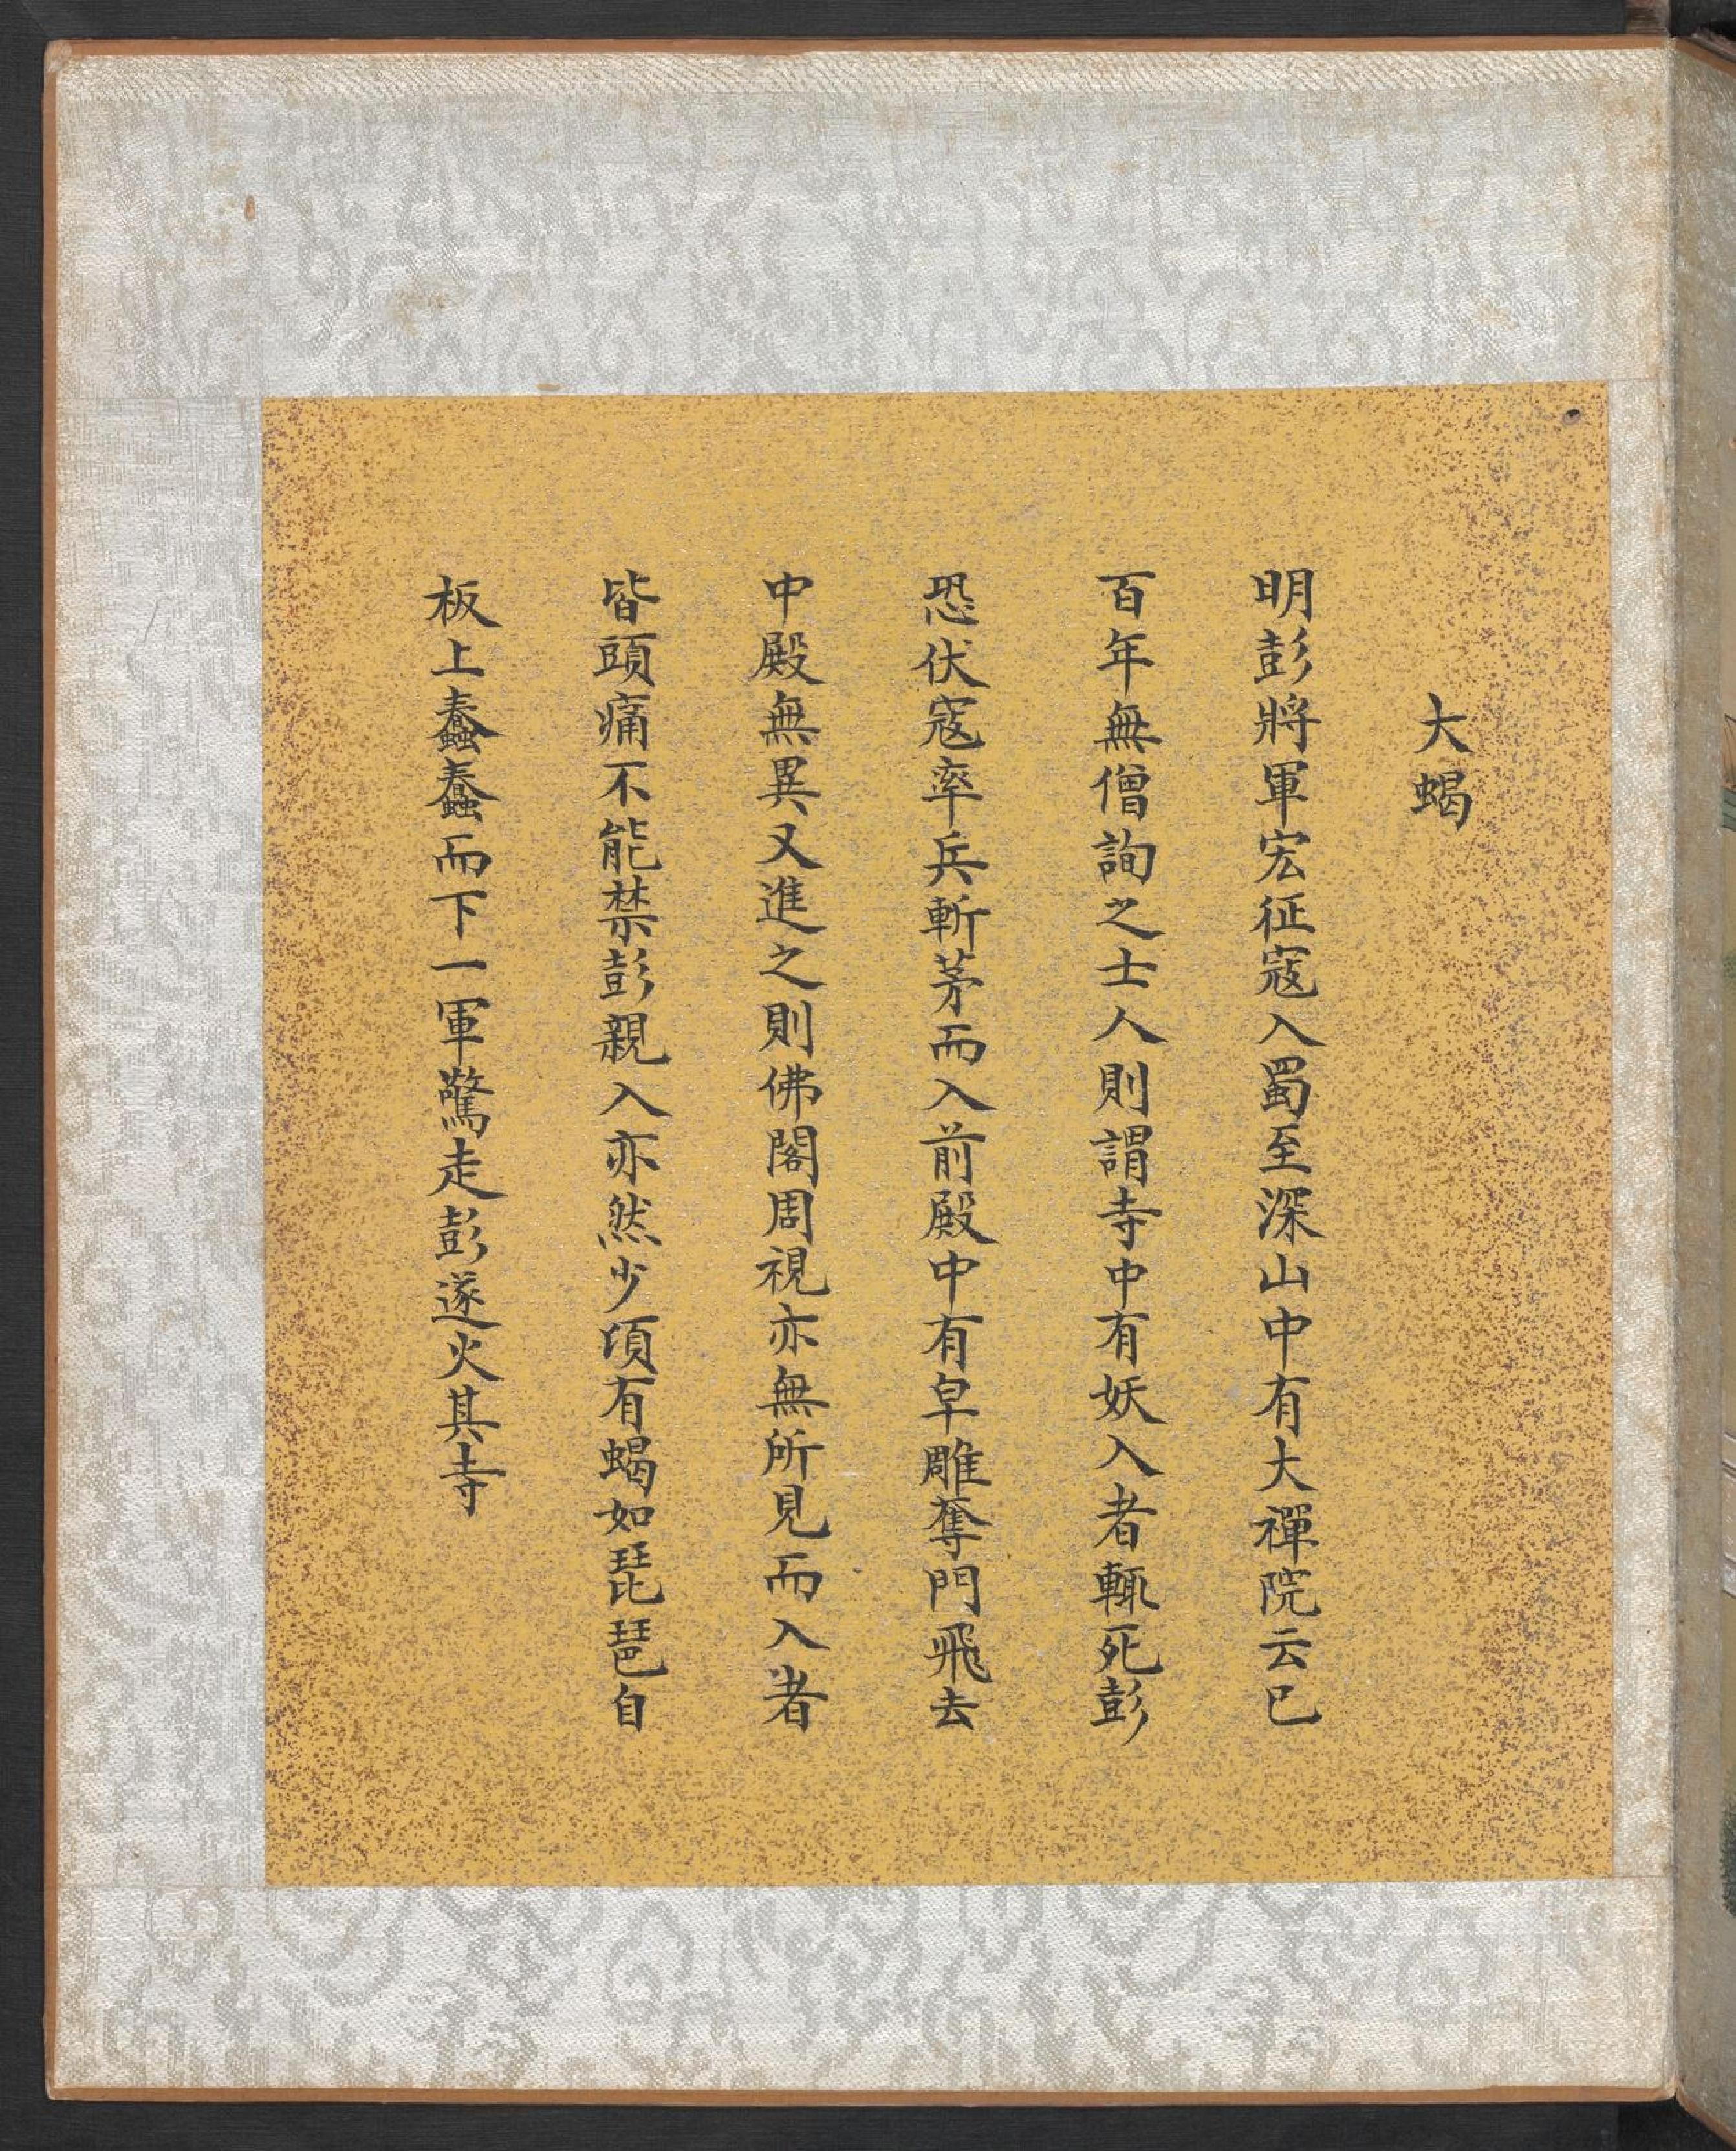 大蝎
明彭將軍宏征寇入蜀至深山中有大禪院云已
百年無僧詢之士人則謂寺中有妖入者輒死彭
恐伏寇率兵斬茅而入前殿中有皁雕奪門飛去
中殿無異又進之則佛閣周視亦無所見而入者
皆頭痛不能禁彭親入亦然少頃有蝎如琵琶自
板上蠢蠢而下一軍驚走彭遂火其寺